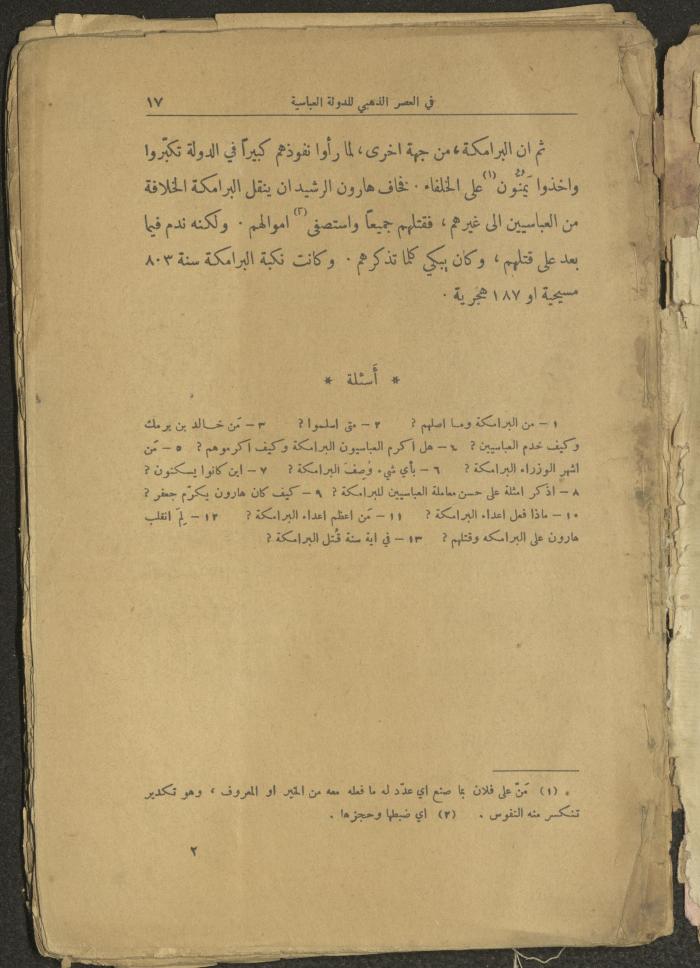 في العصر الذهبي للدولة العباسية ١٧
ثم ان البرامكة، من جهة اخرى، لما رأوا نفوذهم كبيراً في الدولة تكبّروا
واخذوا يَمُنُّون (١) على الخلفاء . فخاف هارون الرشيد ان ينقل البرامكة الخلافة
من العباسيين الى غيرهم ، فقتلهم جميعاً واستصفى (٢) اموالهم . ولكنه ندم فيما
بعد على قتلهم ، وكان يبكي كلما تذكرهم . وكانت نكبة البرامكة سنة ٨٠٣
مسيحية او ١٨٧ هجرية .
* أَسئلة *
١ – من البرامكة وما اصلهم ؟ ٢ – متى اسلموا ؟ ٣ – مَن خالد بن برمك
وكيف خدم العباسيين ؟ ٤ – هل اكرم العباسيون البرامكة وكيف اكرموهم ؟ ٥ – مَن
اشهر الوزراء البرامكة ؟ ٦ – بأي شيء وُصِفَ البرامكة ؟ ٧ – اين كانوا يسكنون ؟
٨ – اذكر امثلة على حسن معاملة العباسيين للبرامكة ؟ ٩ – كيف كان هارون يكرّم جعفر ؟
١٠ – ماذا فعل اعداء البرامكة ؟ ١١ – مَن اعظم اعداء البرامكة ؟ ١٢ – لِمَ انقلب
هارون على البرامكه وقتلهم ؟ ١٣ – في اية سنة قُتل البرامكة ؟
(١) مَنّ على فلان بما صنع اي عدّد له ما فعله معه من الخير او المعروف ، وهو تكدير
تنكسر منه النفوس . (٢) اي ضبطها وحجزها .
٢